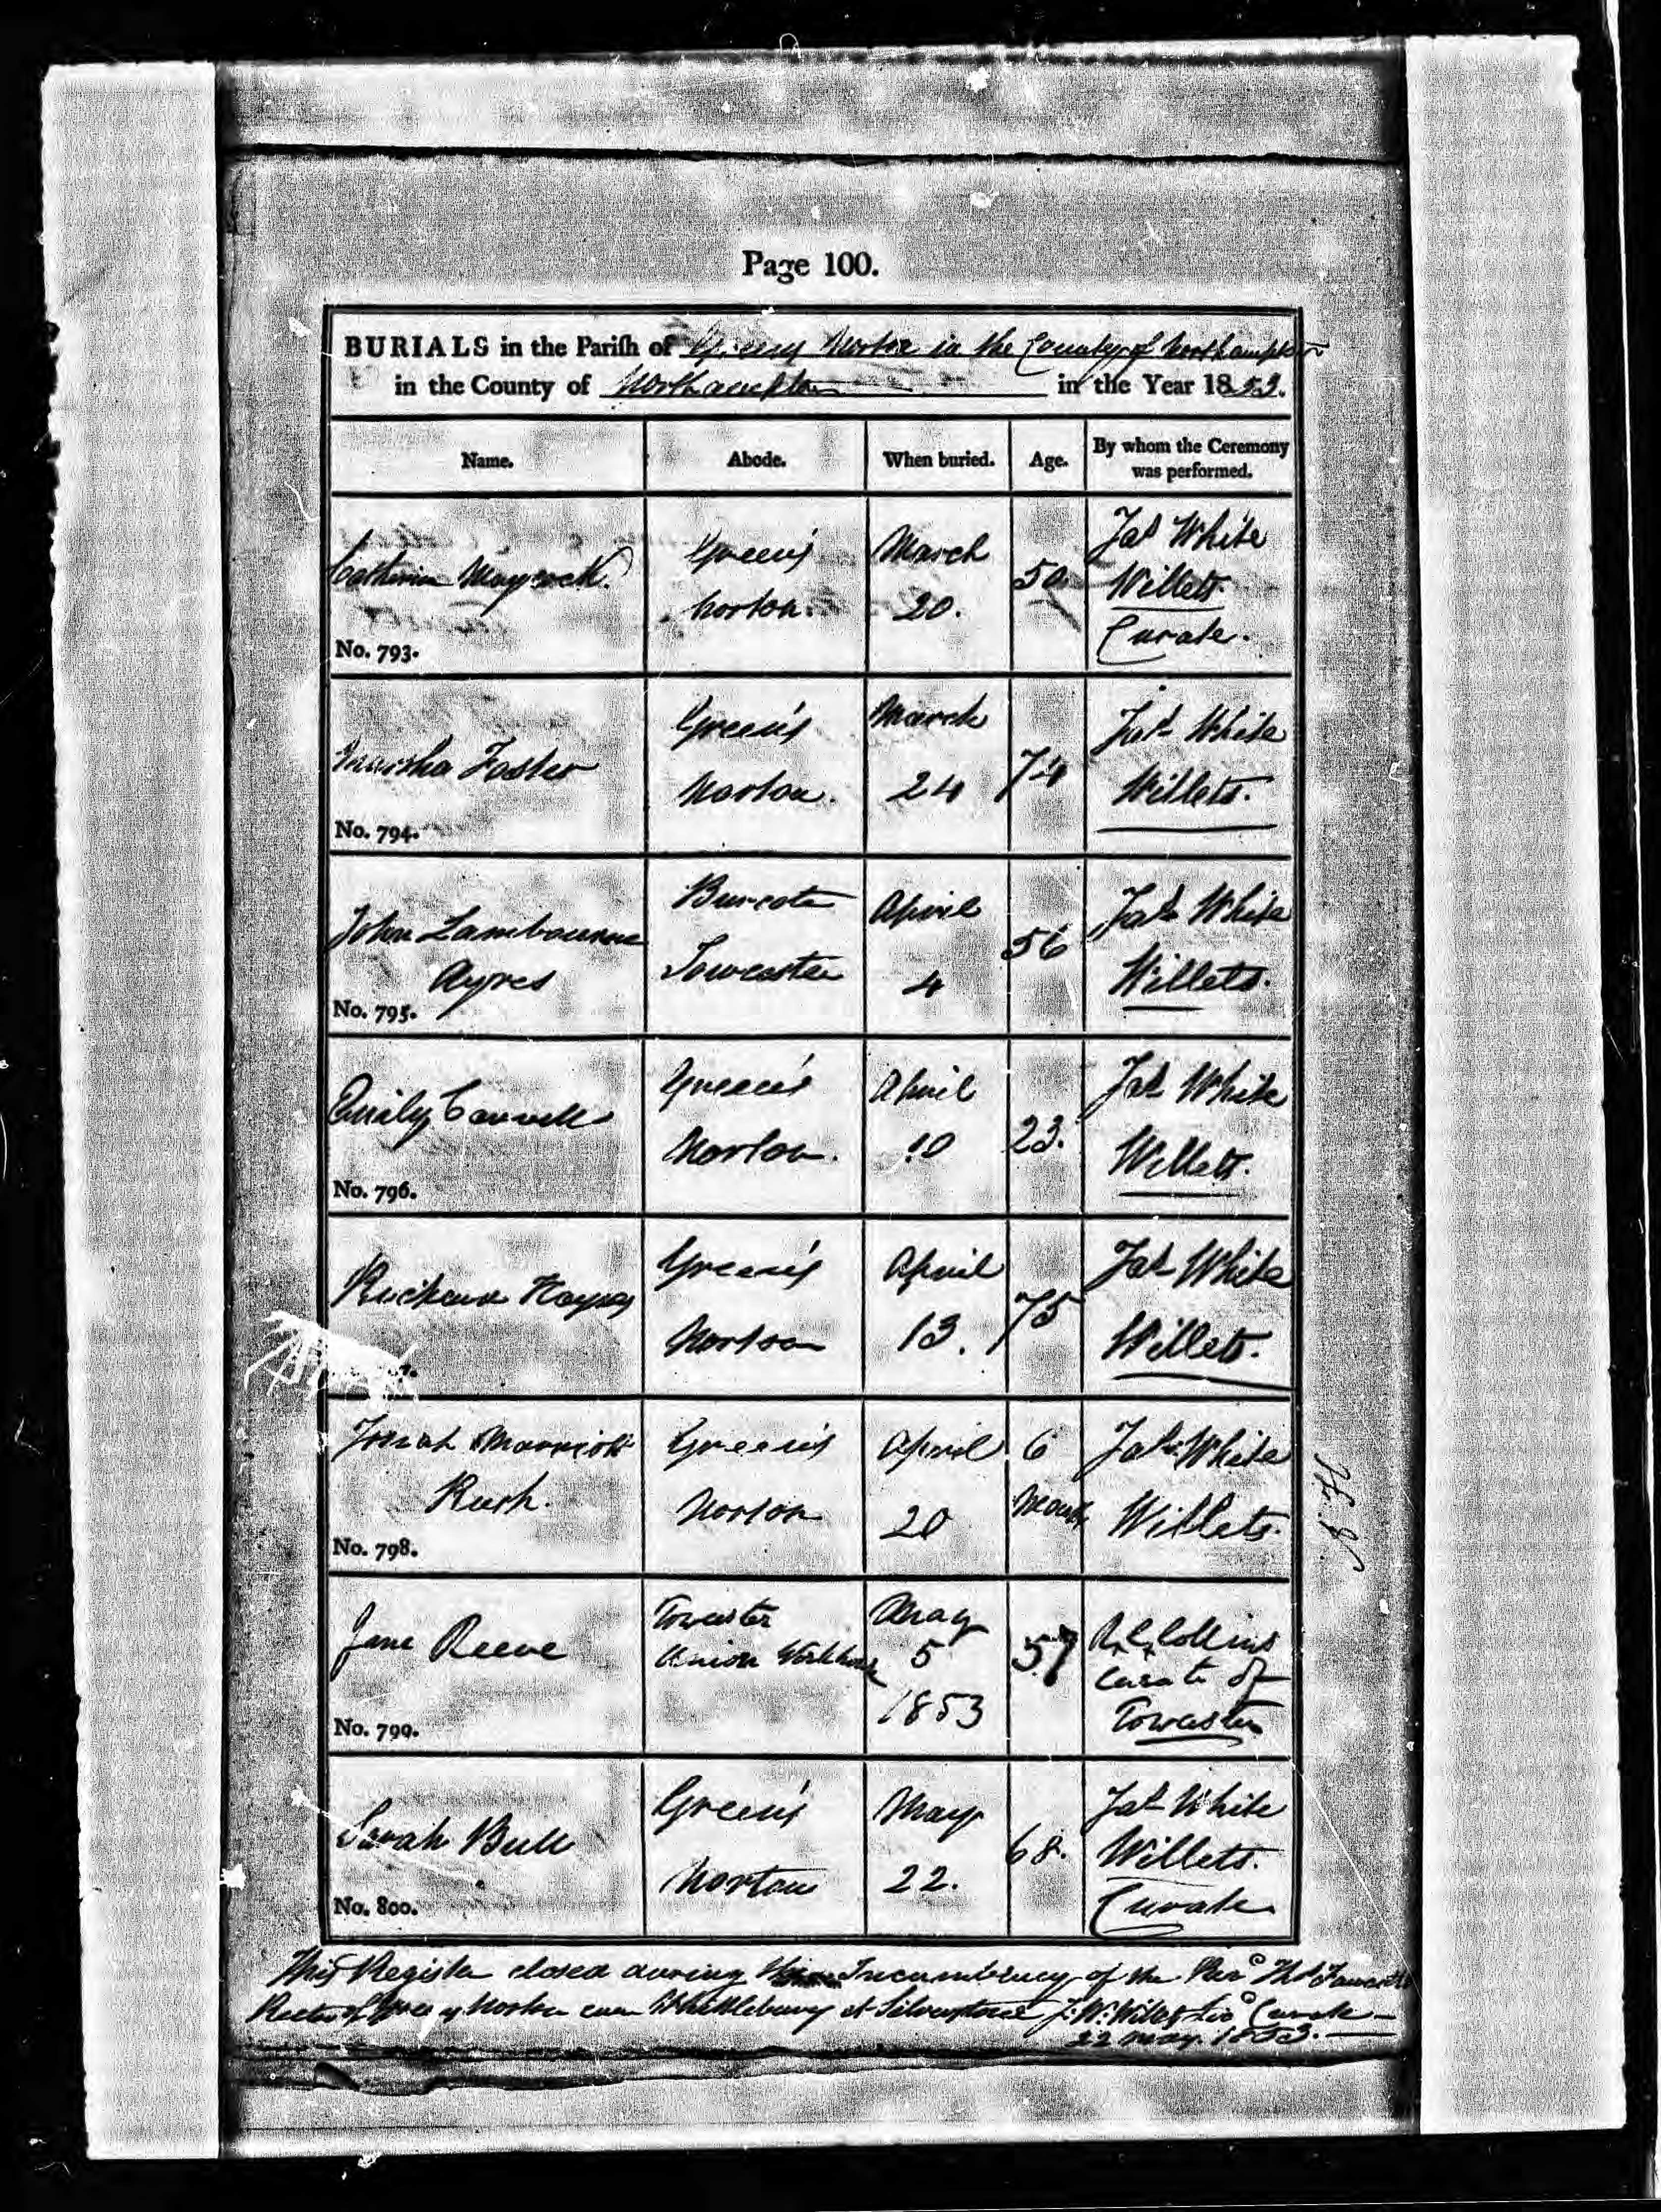 Page 100.
BURIALS in the Parish of Greens Norton in the County of Northampton
in the County of Northampton in the Year 1853.
Name. Abode. When buried. Age. By whom the Ceremony was performed.
Catherine Maycock.
Green's
Norton.
March
20.
50
Jas White
Willets.
Curate.
No. 793.
Martha Foster
Green's
Norton.
March
24
74
Jas White
Willets.
No. 794.
John Lambourne
Ayres
Burcote
Towcester
April
4
56
Jas White
Willets.
No. 795.
Emily
Green's
Norton.
April
10
23.
Jas White
Willets.
No. 796.
Richard
Green's
Norton
April
13.
75
Jas White
Willets.
Josiah Marriott
Rush.
Green's
Norton
April
20
6
Months
Jas White
Willets.
No. 798.
Jane Reeve
Towcester
Union Workhouse
May
5
1853
57
Collins
Curate of
Towcester
No. 799.
Sarah Bull
Green's
Norton
May
22.
68.
Jas White
Willets.
Curate
No. 800.
This Register closed during the Incumbency of the Revd Thos
Rector of Greens Norton cum Whittlebury et Silverstone J. W. Curate
22 May. 1853.